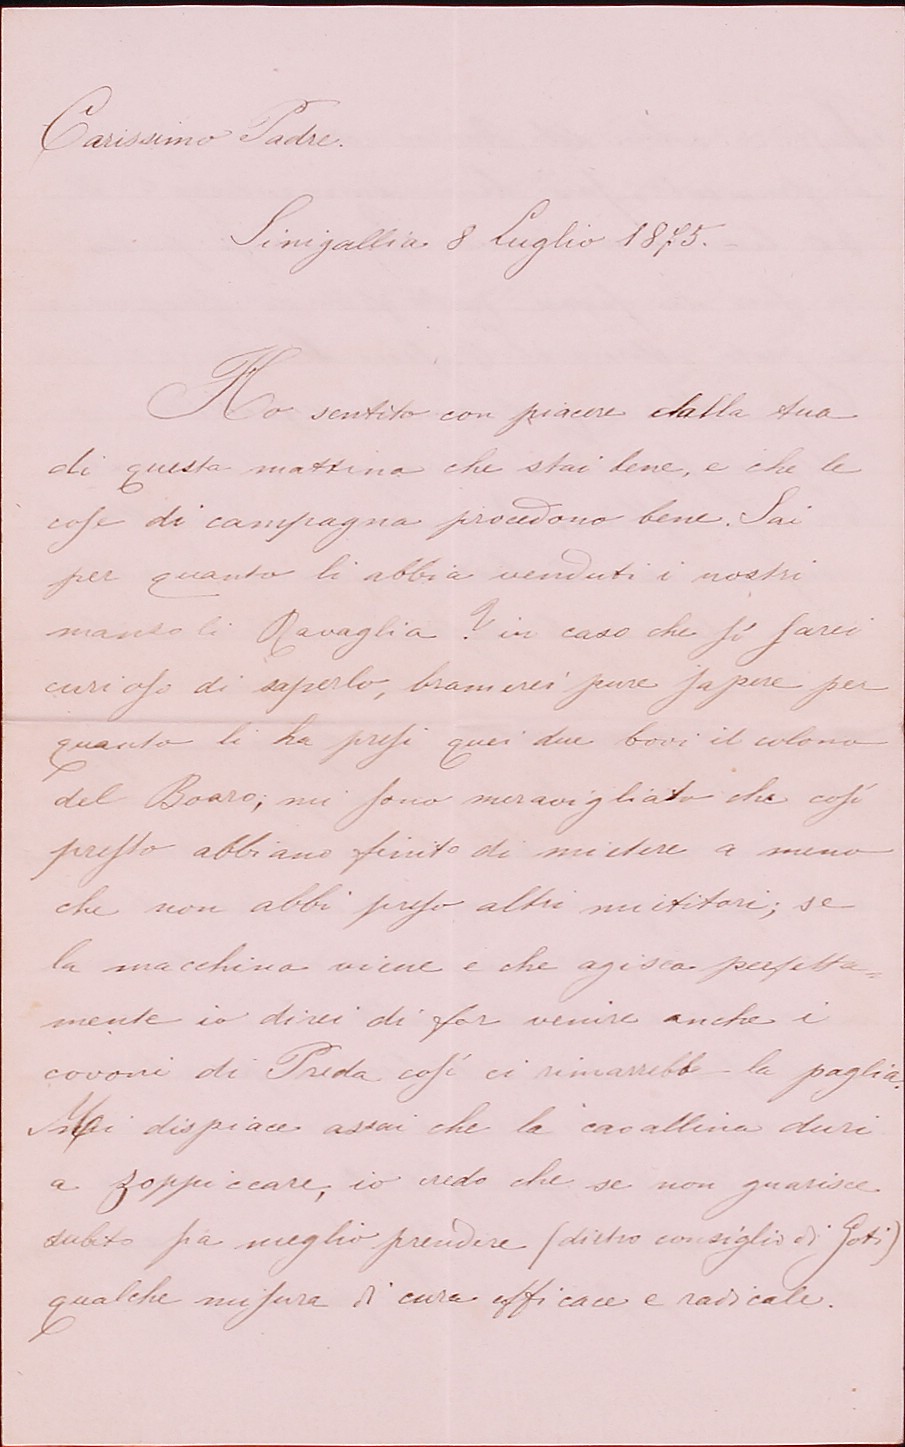 Carissimo Padre.
Sinigallia 8 Luglio 1875.
Ho sentito con piacere dalla tua
di questa mattina che stai bene, e che le
cose di campagna procedono bene. Sai
per quanto li abbia venduti i nostri
manzoli Ravaglia? in caso che sì sarei
curioso di saperlo, bramerei pure sapere per
quanto li ha presi quei due bovi il colono
del Boaro; mi sono meravigliato che così
presto abbiano finito di mietere a meno
che non abbi preso altri mietitori; se
la macchina viene e che agisca perfetta=
mente io direi di far venire anche i
covoni di Preda così ci rimarrebbe la paglia.
Mi dispiace assai che la cavallina duri
a zoppiccare, io credo che se non guarisce
subito sia meglio prendere (dietro consiglio di Goti)
qualche misura di cura efficace e radicale.